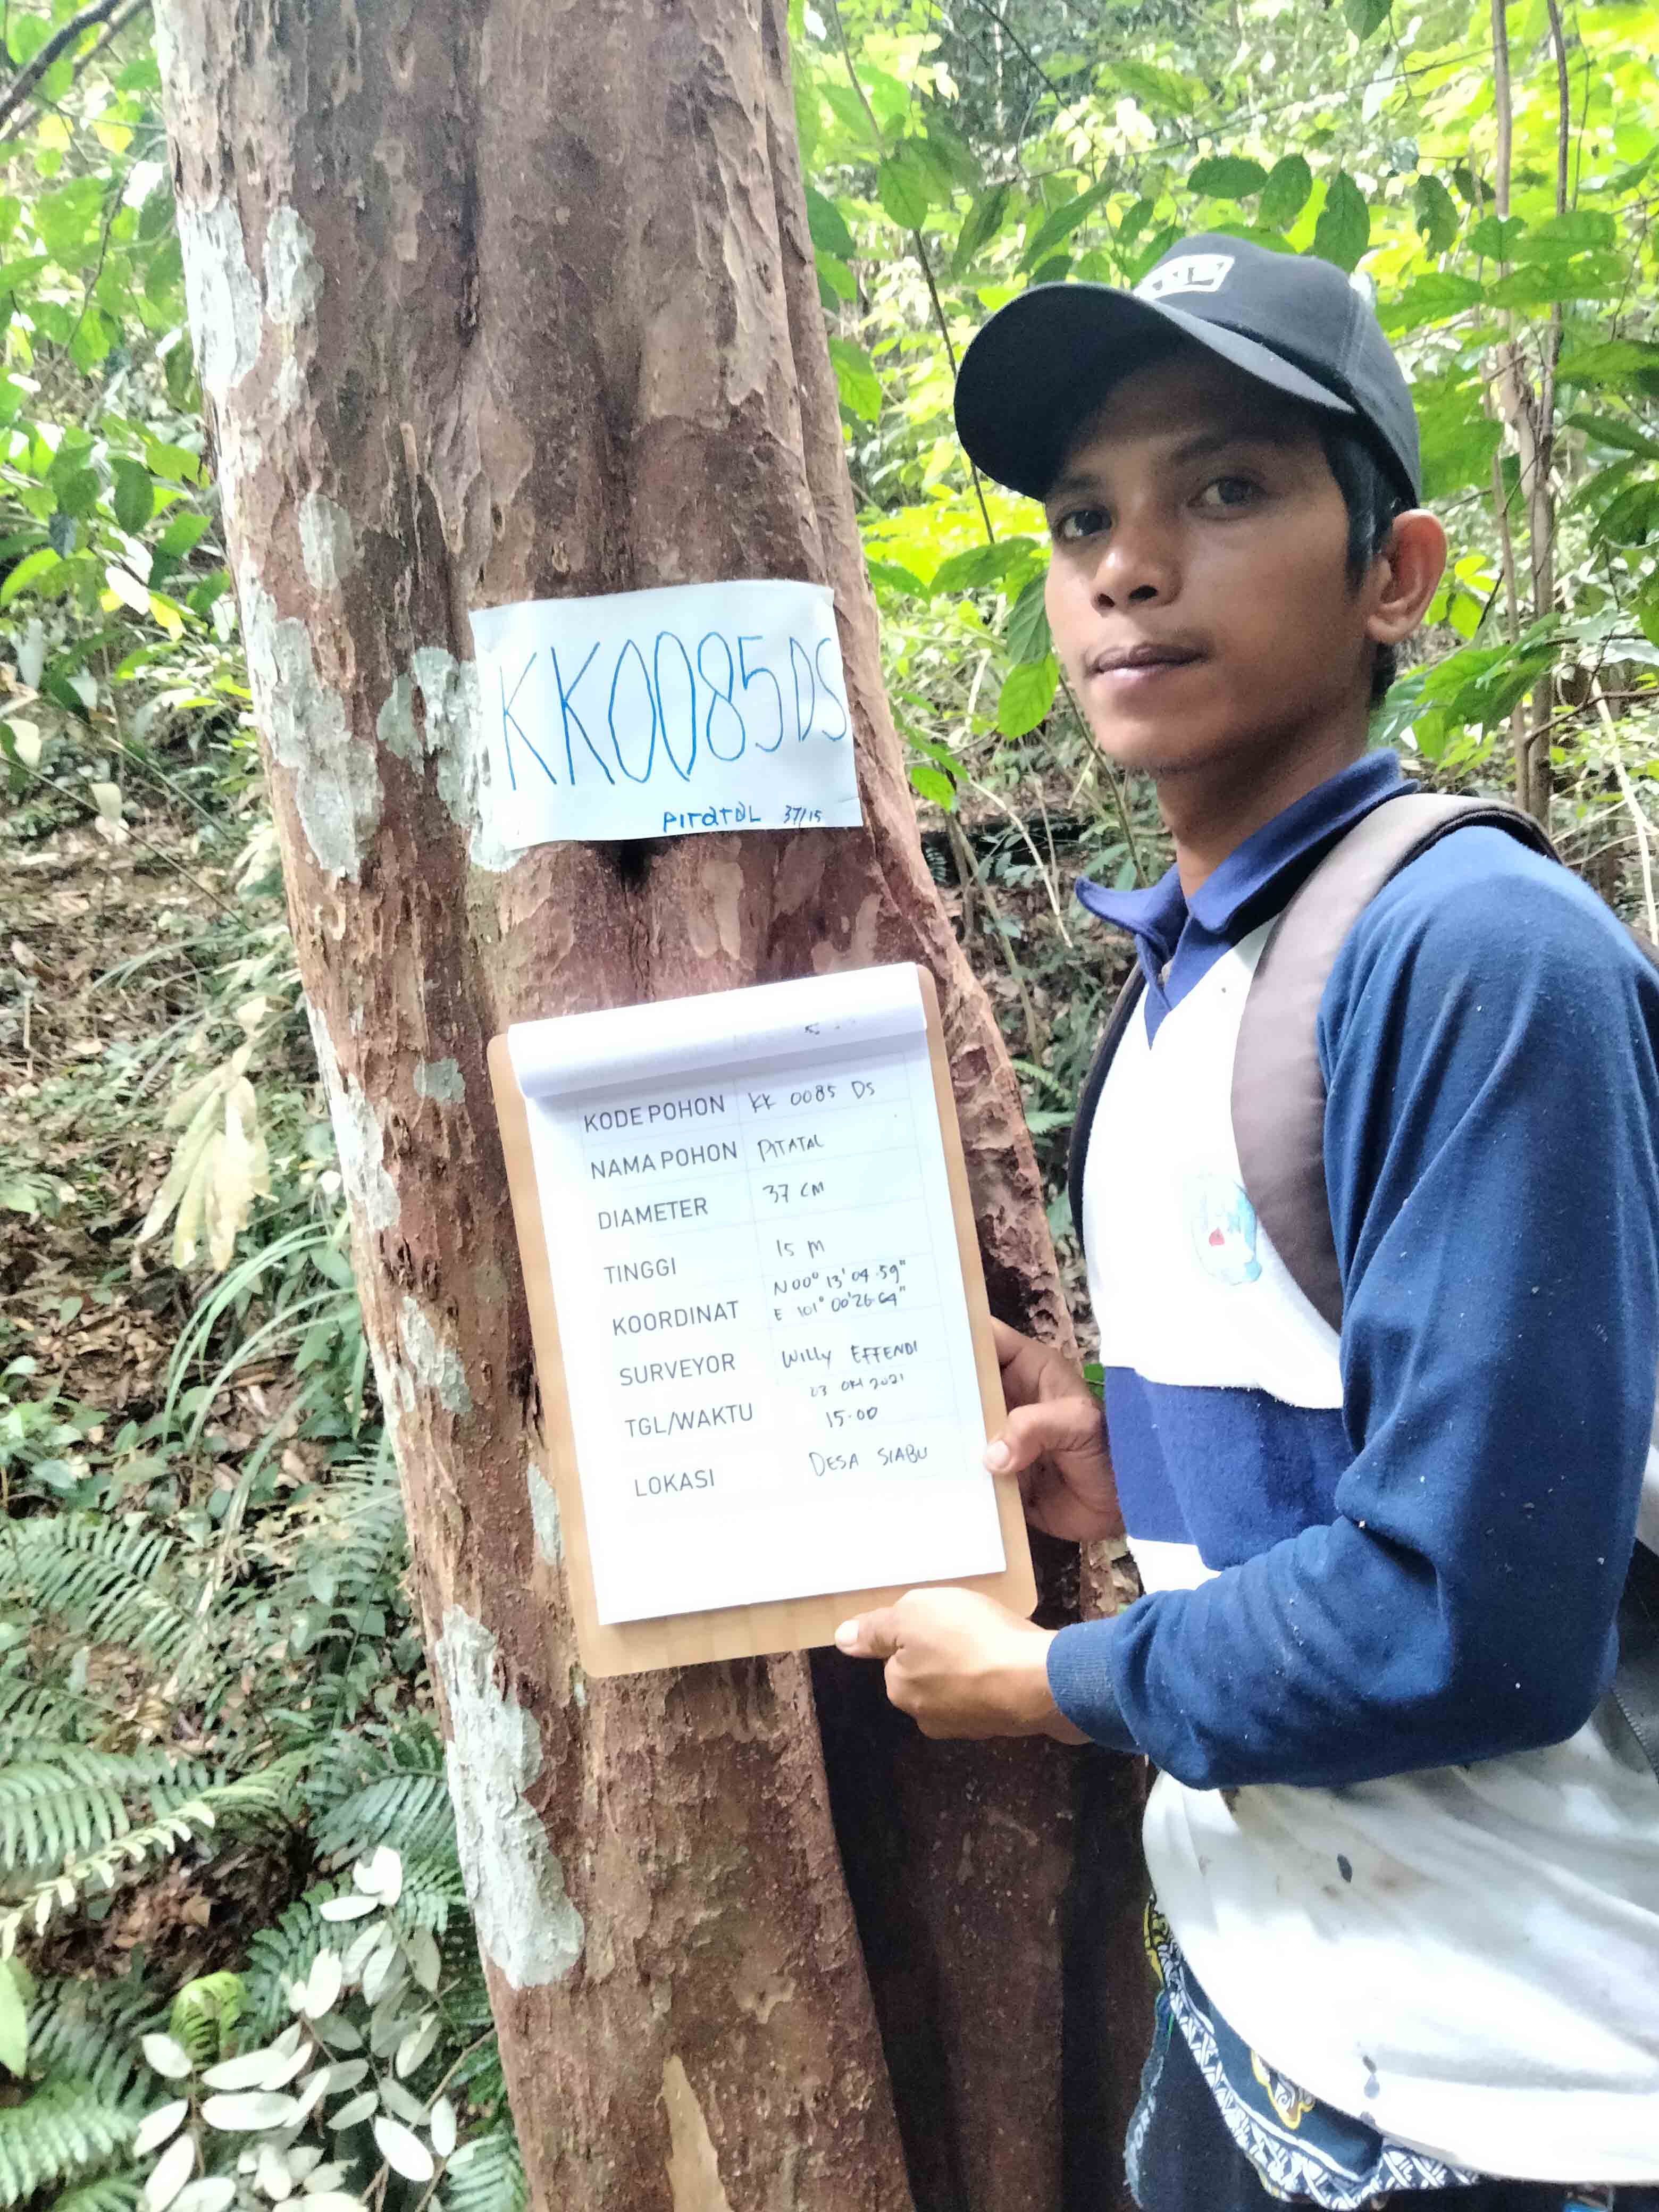 KK0085DS
PITATAL 37/15
KODE POHON KK 0085 DS
NAMA POHON PITATAL
DIAMETER 37 CM
TINGGI 15 M
KOORDINAT N 00° 13' 04.59"
E 101° 00' 26.64"
SURVEYOR WILLY EFFENDI
TGL/WAKTU 23 OKT 2021
15.00
LOKASI DESA SIABU